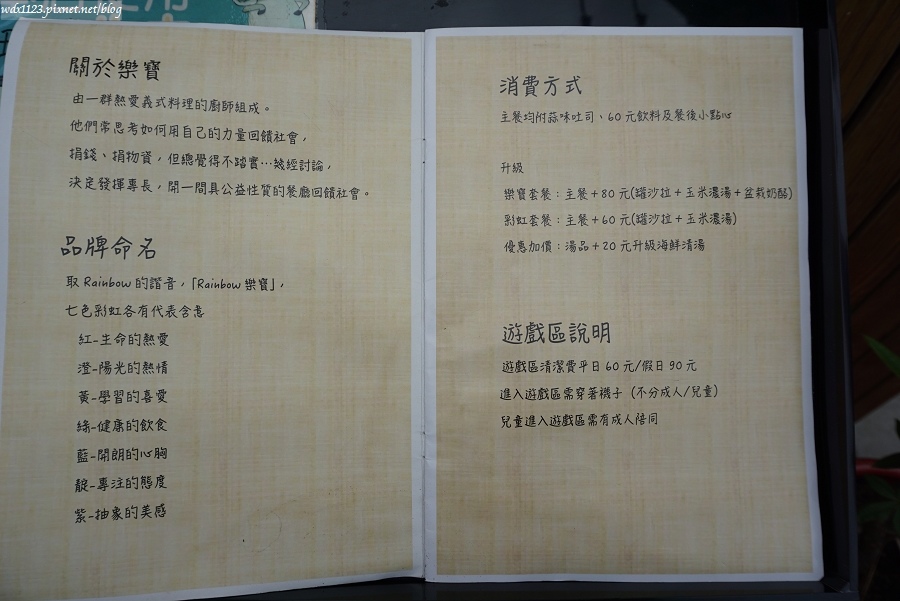 wdx1123.pixnet.net/blog
關於樂寶
由一群熱愛義式料理的廚師組成。
他們常思考如何用自己的力量回饋社會，
捐錢、捐物資，但總覺得不踏實…幾經討論，
決定發揮專長，開一間具公益性質的餐廳回饋社會。
品牌命名
取 Rainbow 的諧音，「Rainbow 樂寶」，
七色彩虹各有代表含意
紅-生命的熱愛
澄-陽光的熱情
黃-學習的喜愛
綠-健康的飲食
藍-開朗的心胸
靛-專注的態度
紫-抽象的美感
消費方式
主餐均附蒜味吐司、60 元飲料及餐後小點心
升級
樂寶套餐：主餐＋80 元(罐沙拉＋玉米濃湯＋盆栽奶酪)
彩虹套餐：主餐＋60 元(罐沙拉＋玉米濃湯)
優惠加價：湯品＋20 元升級海鮮清湯
遊戲區說明
遊戲區清潔費平日 60 元/假日 90 元
進入遊戲區需穿著襪子（不分成人/兒童）
兒童進入遊戲區需有成人陪同